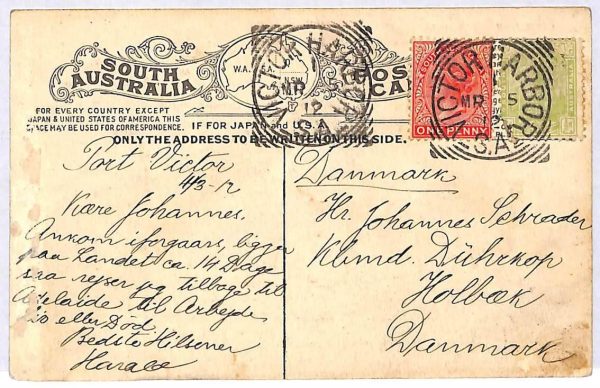 SOUTH AUSTRALIA
W.A.
NSW
POST CARD
FOR EVERY COUNTRY EXCEPT
JAPAN & UNITED STATES OF AMERICA THIS
SPACE MAY BE USED FOR CORRESPONDENCE.
IF FOR JAPAN and U.S.A.
ONLY THE ADDRESS TO BE WRITTEN ON THIS SIDE.
VICTOR HARBOR
MR
12
S.A.
ONE PENNY
VICTOR HARBOR
MR 5
12
S.A.
Port Victor
4/3-12
Kære Johannes.
Ankom iforgaars, ligger
paa Landet ca. 14 Dage
saa rejser og tilbage til
Adelaide til Arbejde
eller Død
Bedste Hilsener
Danmark
Hr. Johannes Schrader
Kbmd. Dührkop
Holbæk
Danmark